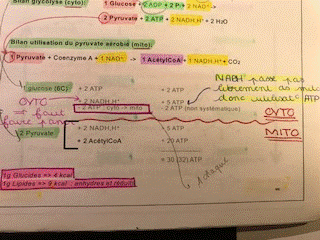 Bilan glycolyse (cyto):
1 Glucose + 2 ADP + 2 Pi + 2 NAD+
2 Pyruvate + 2 ATP + 2 NADH,H+ + 2 H2O
Bilan utilisation du pyruvate aérobie (mito):
1 Pyruvate + Coenzyme A + 1 NAD+ → 1 AcétylCoA + 1 NADH,H+
NADH passe pas
librement ds mito
donc utilisat° ATP
1 glucose (6C)
+ 2 ATP
2 ATP
+ 2 NADH,H+
5 ATP
- 2 ATP : cyto -> mito
- 2ATP (non systématique)
CYTO
faut
faire
CYTO
MITO
2 Pyruvate
+ 2 NADH,H+
5 ATP
+ 2 AcétylCoA
20 ATP
= 30 (32) ATP
1g Glucides => 4 kcal
1g Lipides => 9 kcal : anhydres et réduits